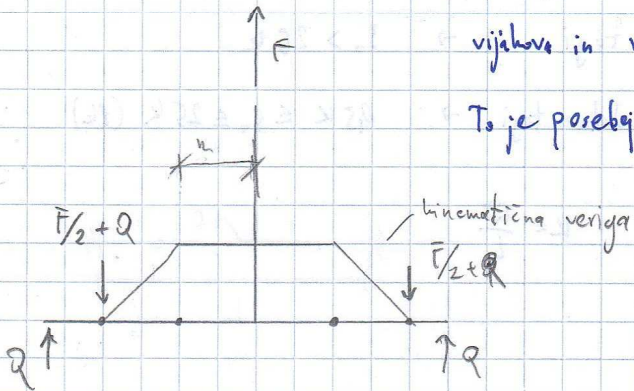 F
vijakova in
To je posebej
m
F/2 + Q
kinematična veriga
F/2 + Q
Q
Q